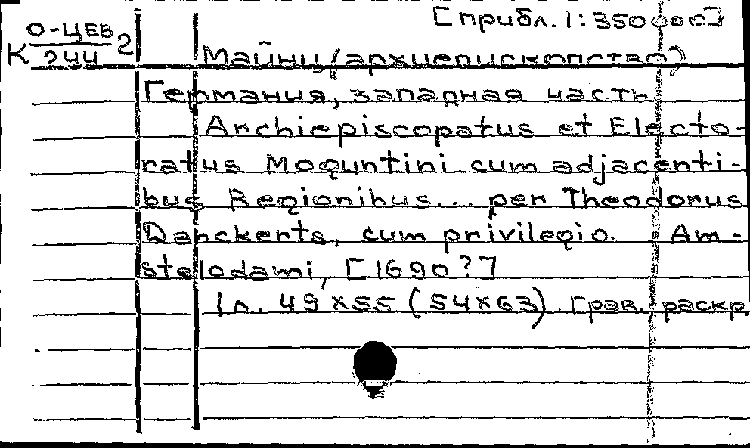 [прибл. 1:350 000]
К О-ЦЕВ/244 2
Майнц (архиепископство)
Германия, западная часть
Archiepiscopatus et Electo-
ratus Moguntini cum adjacenti-
bus Regionibus... per Theodorus
Danckerts, cum privilegio. Am-
stelodami, [1690?]
1 л. 49×55 (54×63). Грав. раскр.